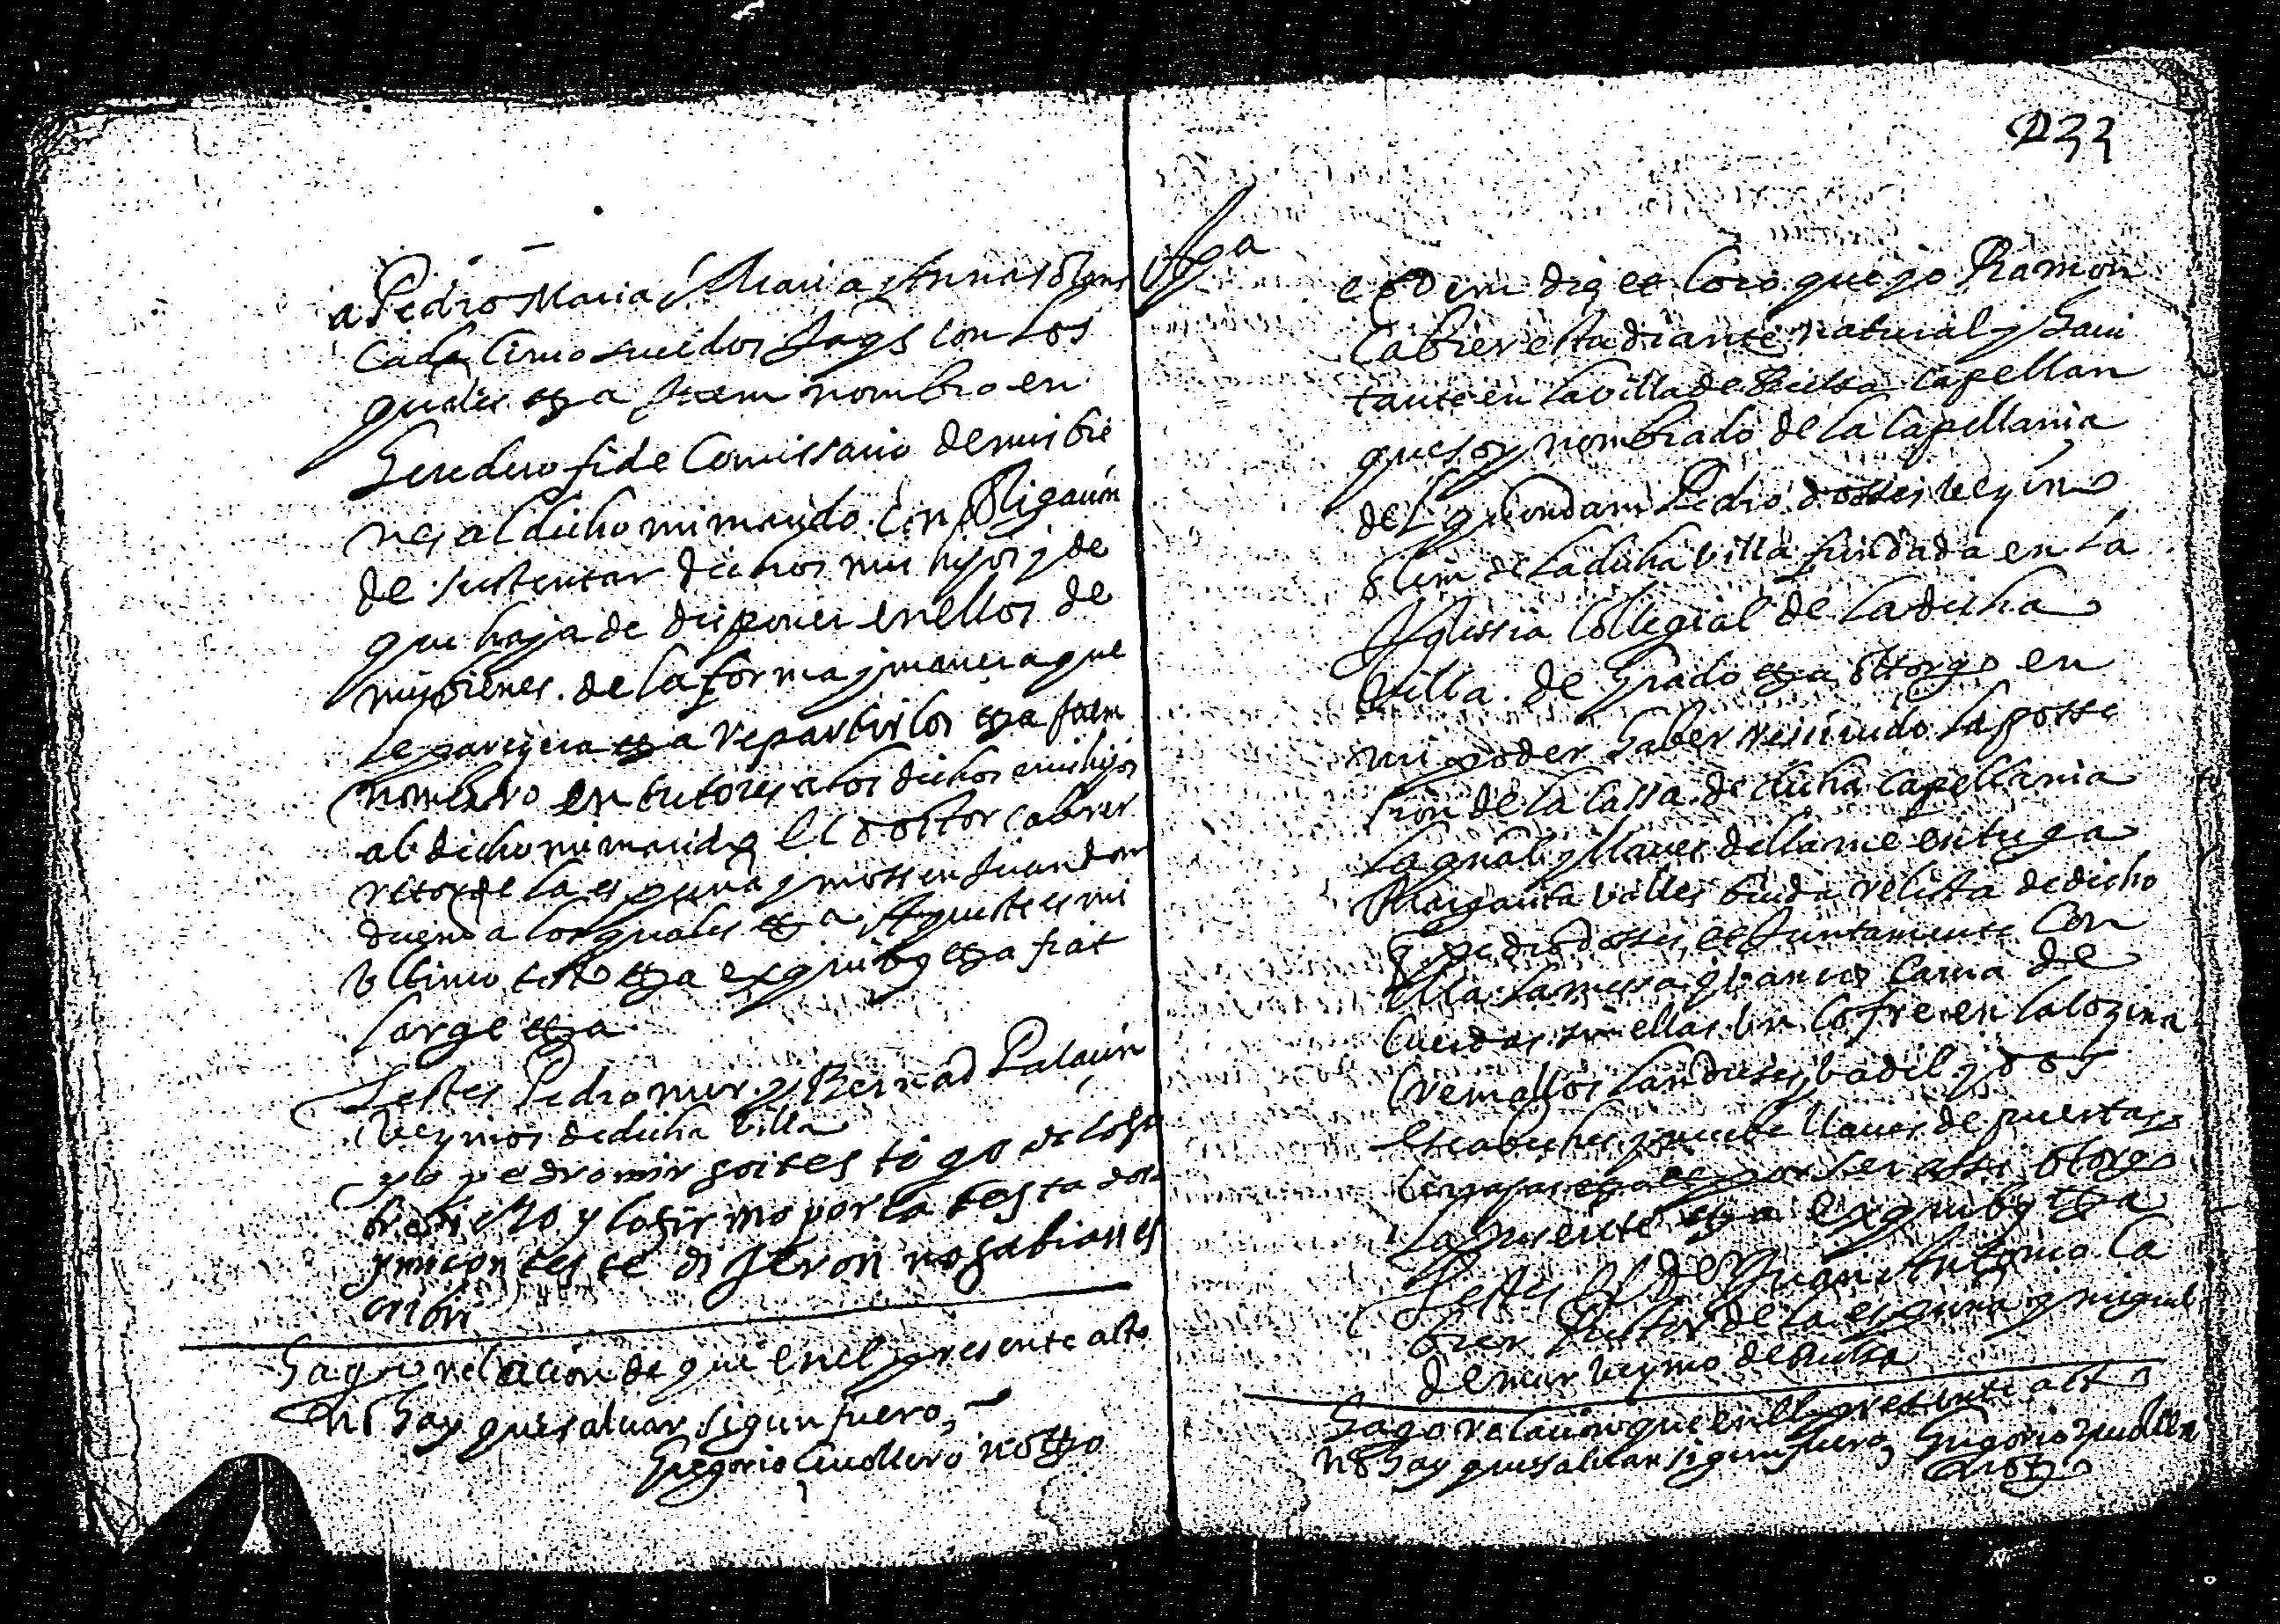 a Pedro Maria y Maria Anna Olsens
cada cinco sueldos Jaqs con los
quales etza Item nombro en
heredero fide Comissario de mis bie
nes al dicho mi marido con obligacion
de sustentar dichos mis hijos y de
que haya de disponer en ellos de
mis bienes. de la forma y manera que
le pareciera etza repartirlos etza Item
nombro en tutores a los dichos mis hijos
al dicho mi marido el doctor cabrer
retor de la espuña y mossen Juan dom
duen a los quales etza Aqueste es mi
ultimo testo etza ex quibus etza fiat
large etza
Testes Pedro mur y Bernad Palacin
veçinos de dicha villa
yo pedro mir soi testigo de lo so
bredicho y lo firmo por la testadora
y mi con teste dijeron no sabian es
cribir
Hago relacion de que en el presente acto
no hay que salvar segun fuero,
Gregorio Cudillero notto
233
eodem die et loco que yo Ramon
Cabrer estudiante natural y havi
tante en la villa de capellan
que soy nombrado de la Capellania
del quondam Pedro dosses veçino
olim de la dicha villa fundada en la
Yglessia Collegial de la dicha
Villa. de grado etza Ottorgo en
mi poder haber recivido la posse
sion de la cassa de dicha capellania
la qual y llaves della me entrega
Margarita Valles biuda relicta de dicho
q. pedro dosses, et Juntamente con
ella la messa y bancos cama de
cuerdas sin ellas un cofre en la cozina
cremallos landeses badil y dos
escabeches y nuebe llaves de puertas
cerrajas etza et por ser assi otorgo
la presente etza ex quibus etza
Testes El Dr Juan Antonio Ca
brer Rector de la espuna y miguel
de mur veçino de
Hago relacion que en el presente acto
no hay que salvar segun fuero, Gregorio Cudillero
notto